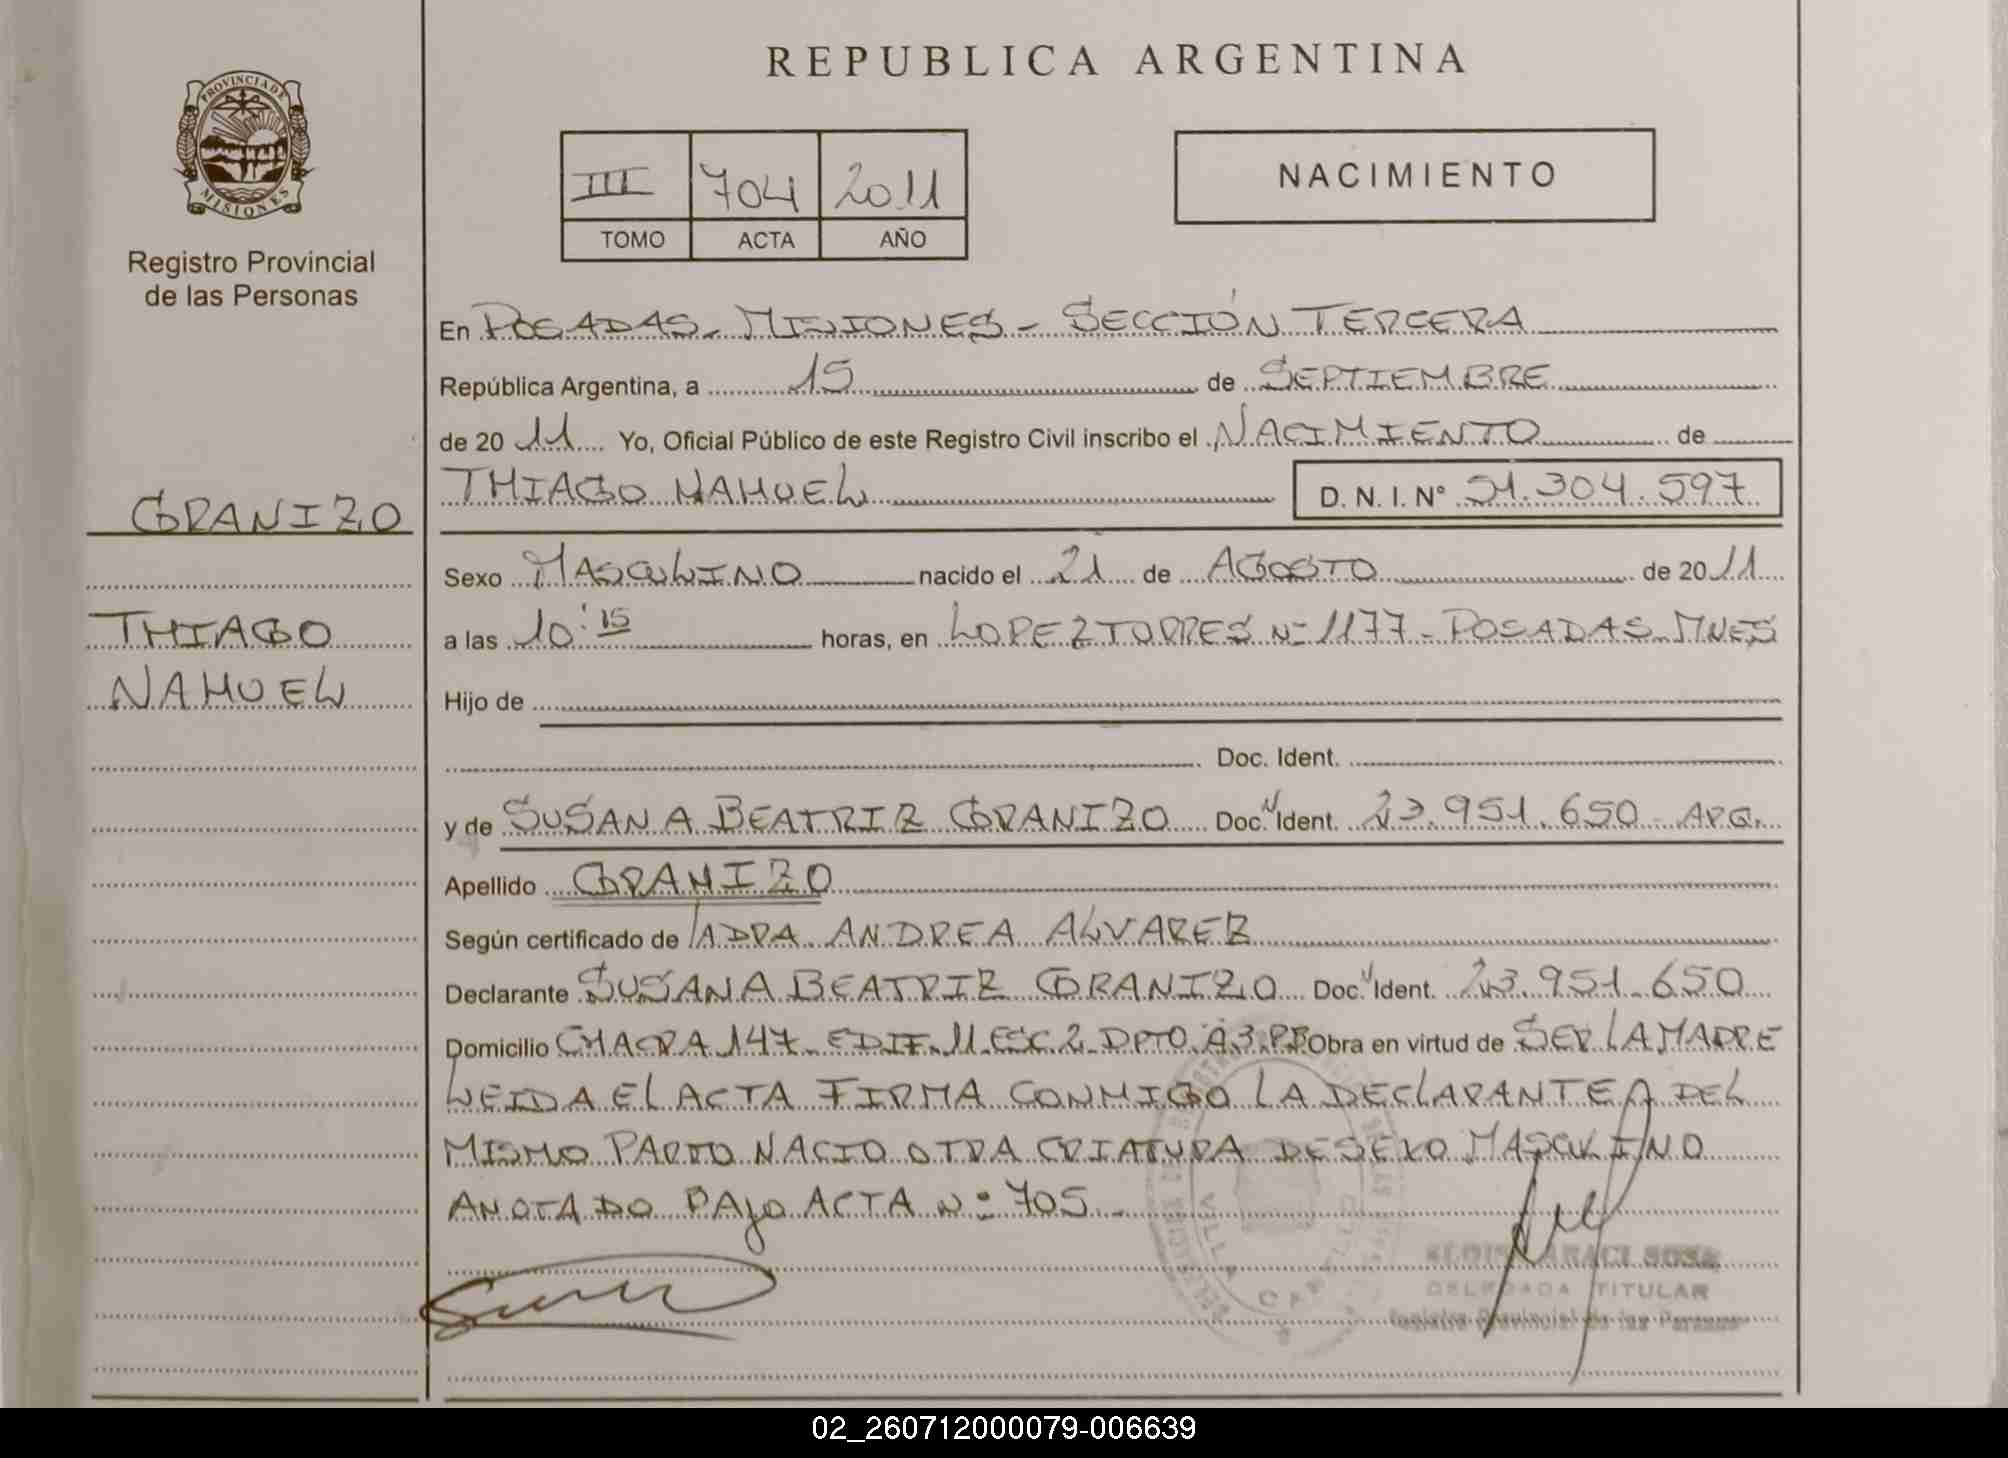 REPUBLICA ARGENTINA
PROVINCIA DE
MISIONES
Registro Provincial
de las Personas
III 704 2011
TOMO ACTA AÑO
NACIMIENTO
En POSADAS - MISIONES - SECCIÓN TERCERA
República Argentina, a 15 de SEPTIEMBRE
de 20 11 Yo, Oficial Público de este Registro Civil inscribo el NACIMIENTO de
THIAGO NAHUEL D. N. I. N° 51.304.597
GRANIZO
THIAGO
NAHUEL
Sexo MASCULINO nacido el 21 de AGOSTO de 20 11
a las 10:15 horas, en LOPEZ TORRES Nº 1177 - POSADAS - MNES
Hijo de
Doc. Ident.
y de SUSANA BEATRIZ GRANIZO Doc. Ident. 23.951.650 ARG.
Apellido GRANIZO
Según certificado de LA DRA. ANDREA ALVAREZ
Declarante SUSANA BEATRIZ GRANIZO Doc. Ident. 23.951.650
Domicilio CHACRA 147 - EDIF. 11 ESC 2 - DPTO. A 3. PB Obra en virtud de SER LA MADRE
LEIDA EL ACTA FIRMA CONMIGO LA DECLARANTE DEL
MISMO PARTO NACIO OTRA CRIATURA DE SEXO MASCULINO
ANOTADO BAJO ACTA Nº 705 -
VILLA CABELLO
ARACI SOSA
DELEGADA TITULAR
Registro Provincial de las Personas
02_260712000079-006639